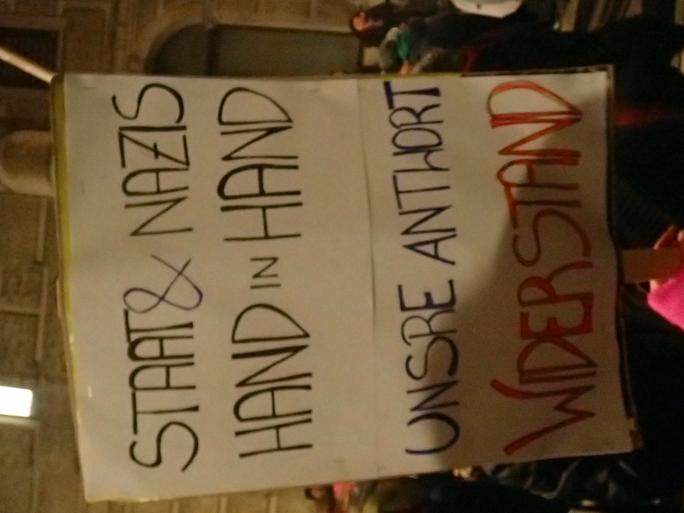 STAAT & NAZIS
HAND IN HAND
UNSRE ANTWORT
WIDERSTAND